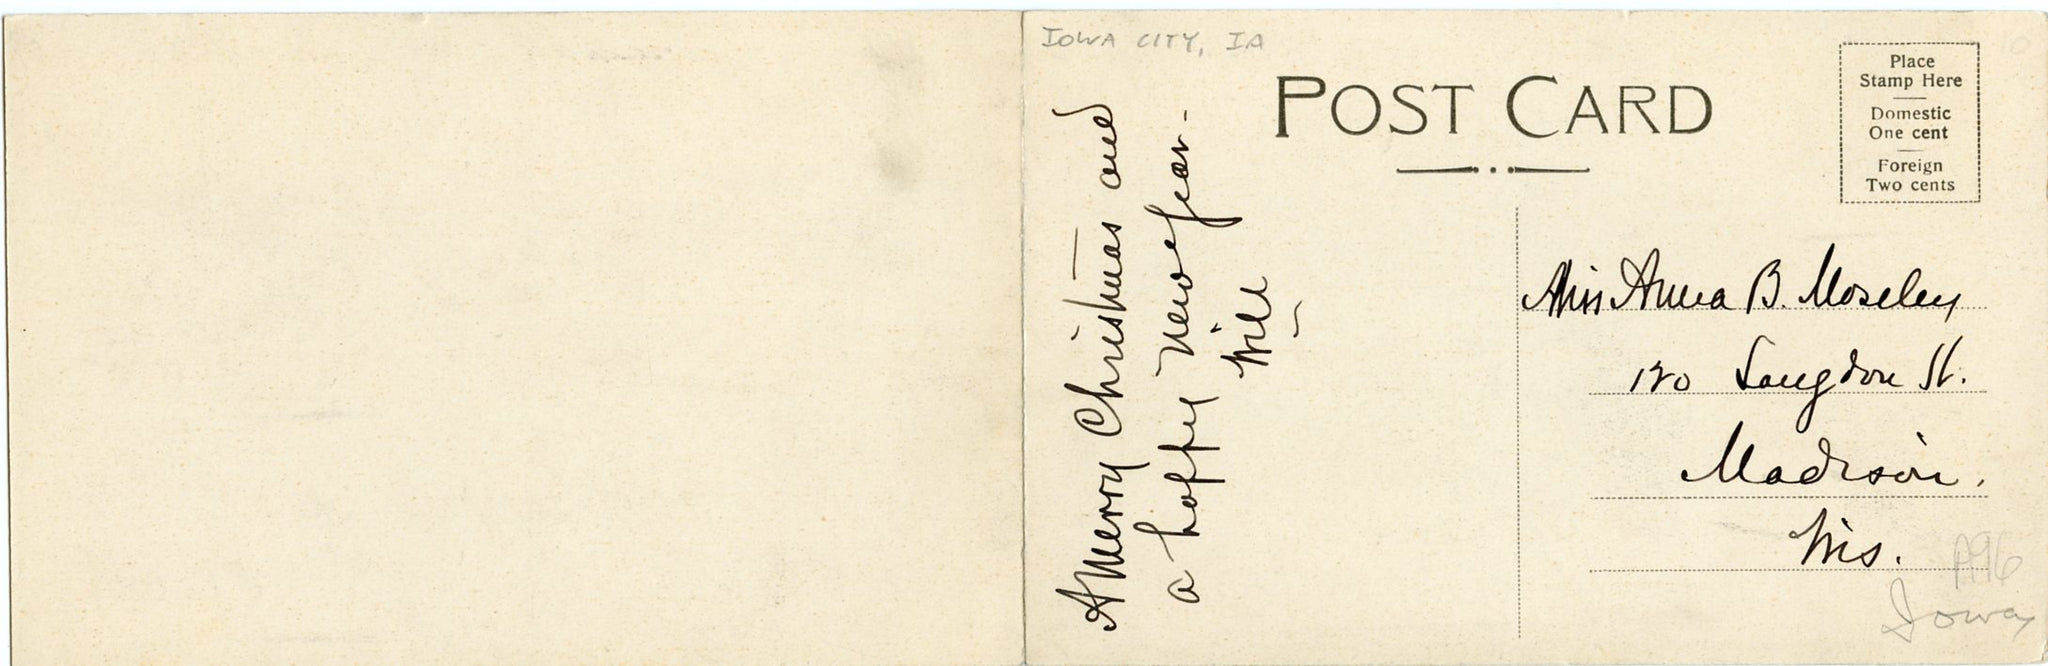 IOWA CITY, IA
POST CARD
Place
Stamp Here
Domestic
One cent
Foreign
Two cents
A Merry Christmas and
a happy New Year -
Will
Miss Anna B. Moseley
120 Langdon St.
Madison.
Wis.
A96
Iowa